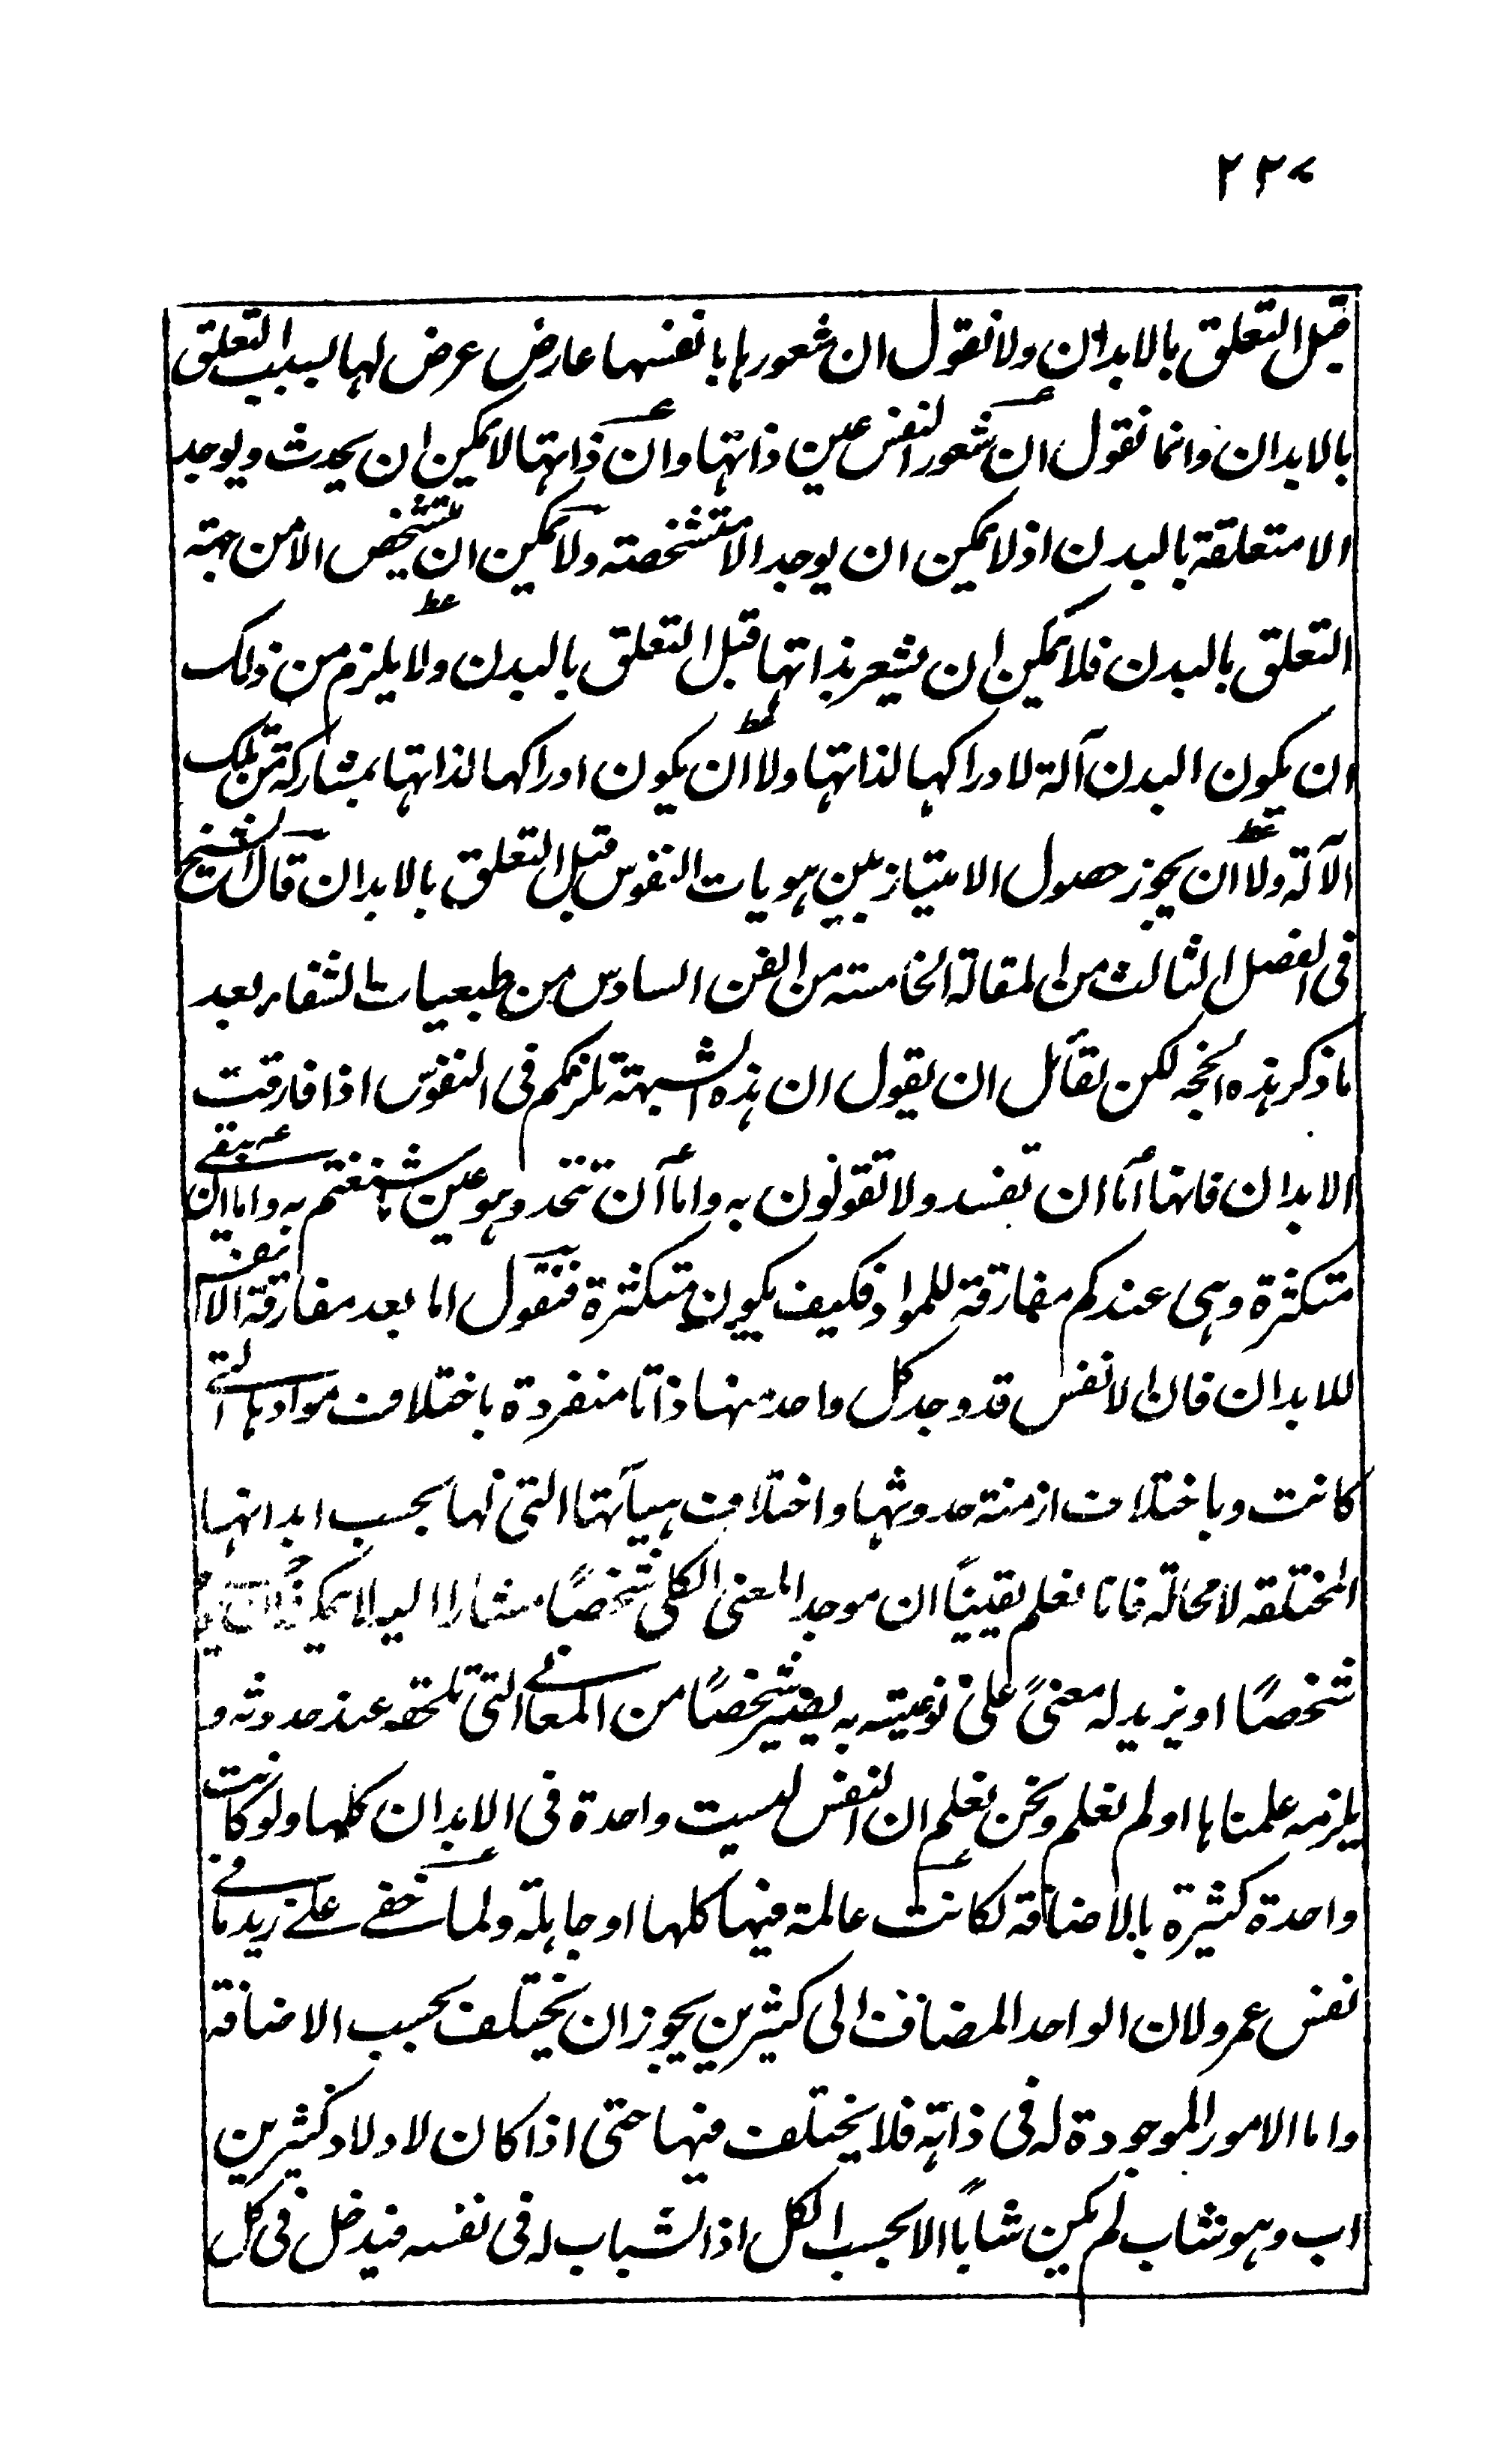 ٢٢٧
قبل التعلق بالابدان ولا نقول ان شعورها بانفسها عارض عرض لها لسبب التعلق
بالابدان وانما نقول ان شعور النفس عين ذاتها وان ذاتها لا يمكن ان يحدث ويوجد
الا متعلقة بالبدن اذ لا يمكن ان يوجد الا متشخصة ولا يمكن ان تتشخص الا من جهة
التعلق بالبدن فلا يمكن ان يشعر بذاتها قبل التعلق بالبدن ولا يلزم من ذلك
ان يكون البدن آلة لادراكها لذاتها ولا ان يكون ادراكها لذاتها بمشاركة من تلك
الآلة ولا ان يجوز حصول الامتياز بين هويات النفوس قبل التعلق بالابدان قال الشيخ
فى الفصل الثالث من المقالة الخامسة من الفن السادس من طبعيات الشفاء بعد
ما ذكر هذه الحجة لكن لقائل ان يقول ان هذه الشبهة تلزمكم فى النفوس اذا فارقت
الابدان فانها اما ان تفسد ولا تقولون به واما ان تتحد وهو عين ما شنعتم به واما ان تبقى
متكثرة وهى عندكم مفارقة للمواد فكيف يكون متكثرة فنقول اما بعد مفارقة الانفس
للابدان فان الانفس قد وجد كل واحد منها ذاتا منفردة باختلاف موادها التى
كانت وباختلاف ازمنة حدوثها واختلاف هيآتها التى لها بحسب ابدانها
المختلفة لا محالة فانا نعلم يقينًا ان موجد المعنى الكلى شخصًا مشارا اليه لا يمكنه ان
شخصًا او يزيد له معنىً على نوعيته به يصير شخصًا من المعانى التى تلحقه عند حدوثه و
يلزمه علمناها او لم نعلم ونحن نعلم ان النفس ليست واحدة فى الابدان كلها ولو كانت
واحدة كثيرة بالاضافة لكانت عالمة فيها كلها او جاهلة ولما خفى على زيد ما فى
نفس عمرو لان الواحد المضاف الى كثيرين يجوز ان يختلف بحسب الاضافة
واما الامور الموجودة له فى ذاته فلا يختلف فيها حتى اذا كان لاولاد كثيرين
اب وهو شاب لم يكن شابًا الا بحسب الكل اذ الشباب له فى نفسه فيدخل فى كل